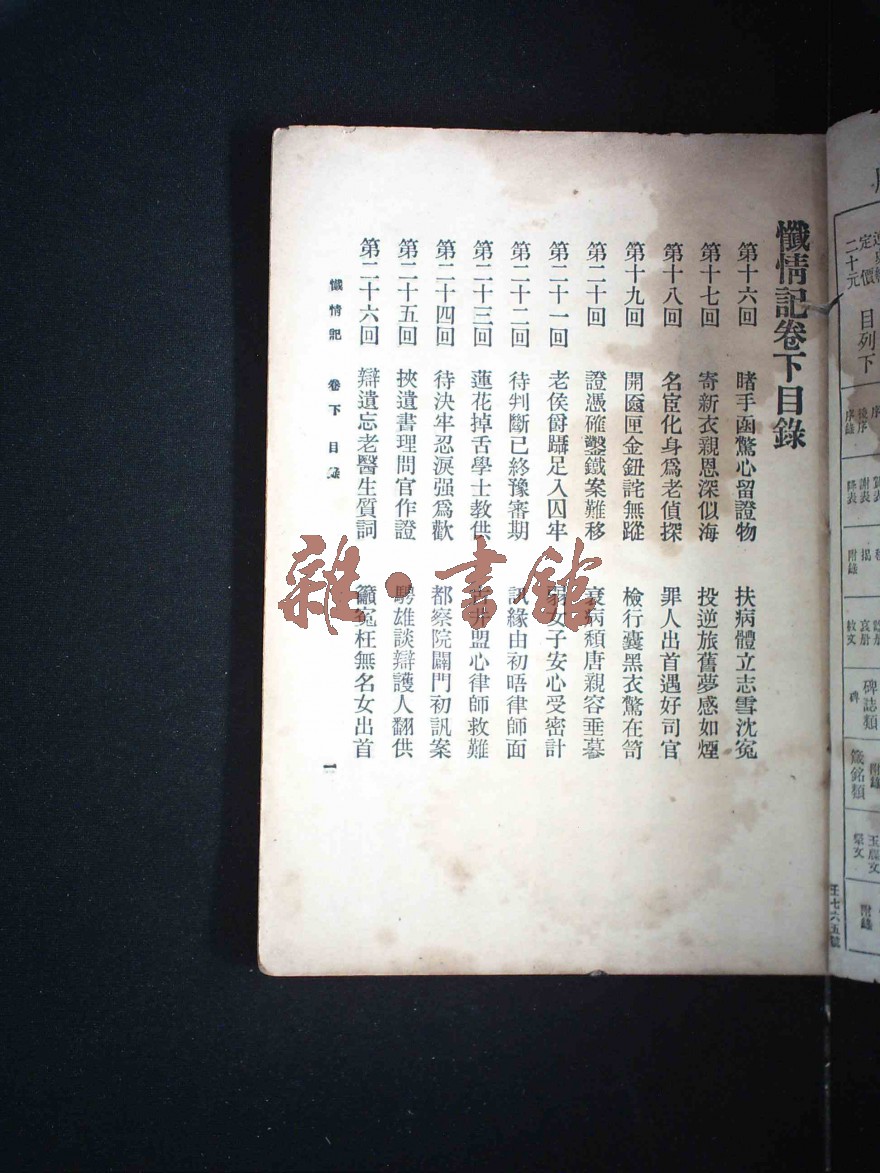 懺情記卷下目錄
第十六回 睹手函驚心留證物 扶病體立志雪沈寃
第十七回 寄新衣親恩深似海 投逆旅舊夢感如煙
第十八回 名宦化身爲老偵探 罪人出首遇好司官
第十九回 開匳匣金鈕詫無蹤 檢行囊黑衣驚在笥
第二十回 證憑確鑿鐵案難移 衰病頹唐親容垂暮
第二十一回 老侯爵躡足入囚牢 弱女子安心受密計
第二十二回 待判斷已終豫審期 訊緣由初晤律師面
第二十三回 蓮花掉舌學士教供 井盟心律師救難
第二十四回 待決牢忍淚强爲歡 都察院闢門初訊案
第二十五回 挾遺書理問官作證 騁雄談辯護人翻供
第二十六回 辯遺忘老醫生質詞 籲寃枉無名女出首
懺情記 卷下 目錄 一
雜·書館
定價
二十元
目列下
序
後序
序錄
謝表
降表
揭
附錄
哀册
敕文
碑誌類
碑
附錄
箴銘類
祭文
附錄
王七六五號